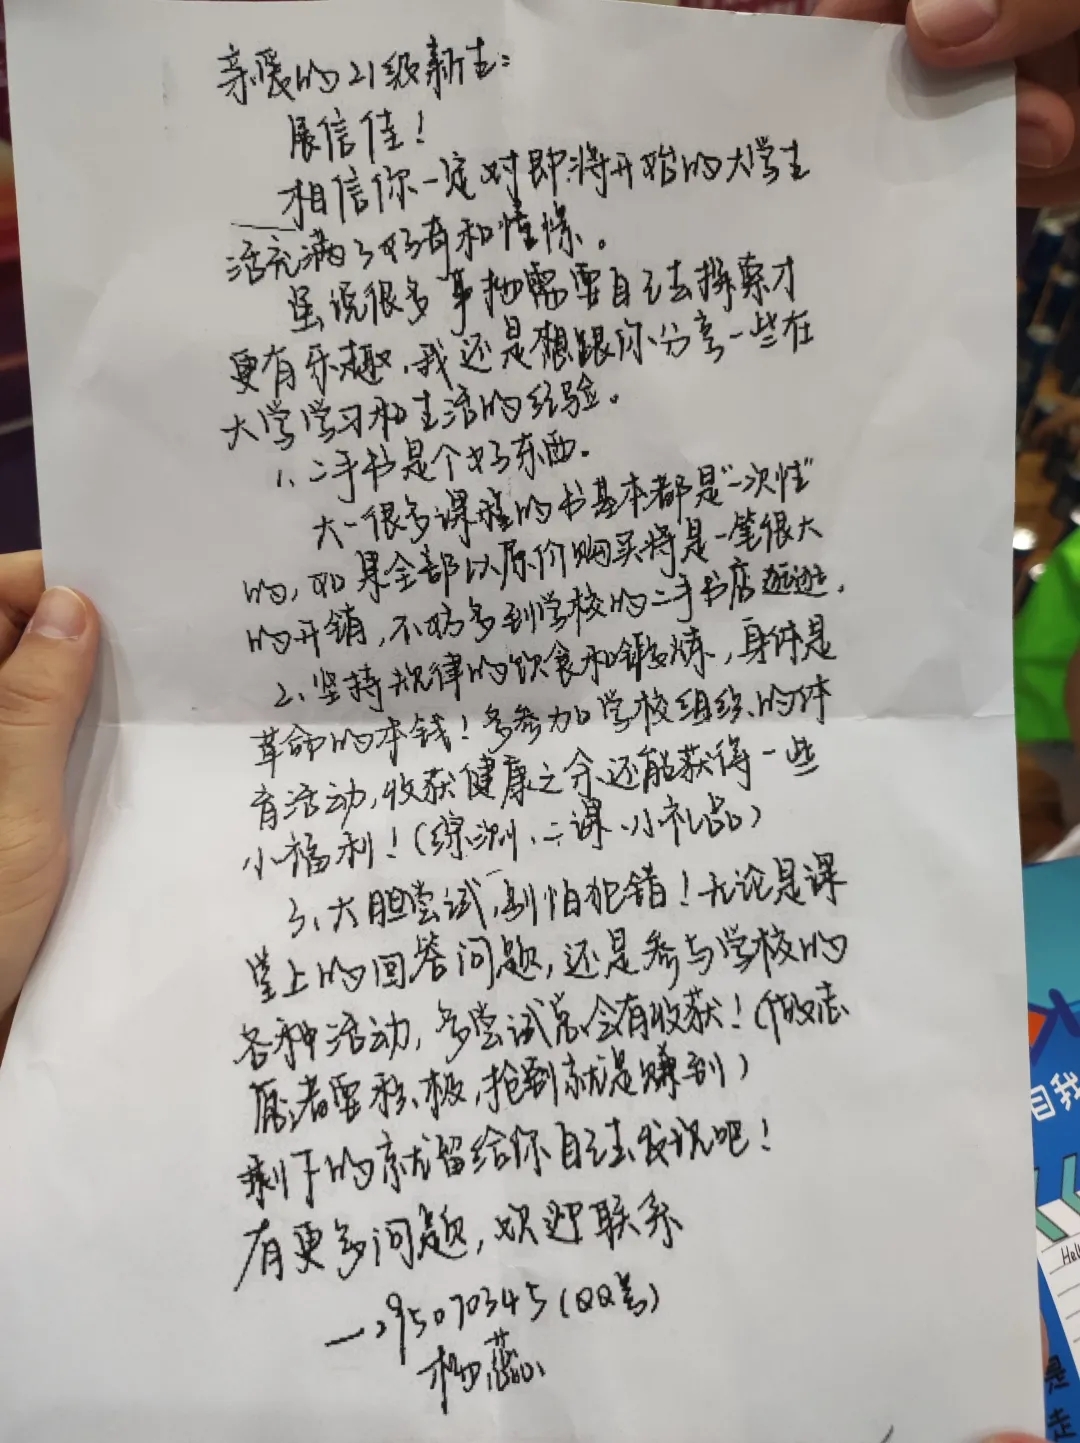 亲爱的21级新生：
展信佳！
相信你一定对即将开始的大学生
活充满了好奇和憧憬。
虽说很多事物需要自己去探索才
更有乐趣，我还是想跟你分享一些在
大学学习和生活的经验。
1、二手书是个好东西。
大一很多课程的书基本都是“一次性”
的，如果全部以原价购买将是一笔很大
的开销，不妨多到学校的二手书店逛逛。
2、坚持规律的饮食和锻炼，身体是
革命的本钱！多参加学校组织的体
育活动，收获健康之余还能获得一些
小福利！（综测、二课、小礼品）
3、大胆尝试，别怕犯错！无论是课
堂上的回答问题，还是参与学校的
各种活动，多尝试总会有收获！（做志
愿者要积极，抢到就是赚到）
剩下的就留给你自己去发现吧！
有更多问题，欢迎联系
—295070345（QQ号）
杨蕊
自我
Hell
是
走